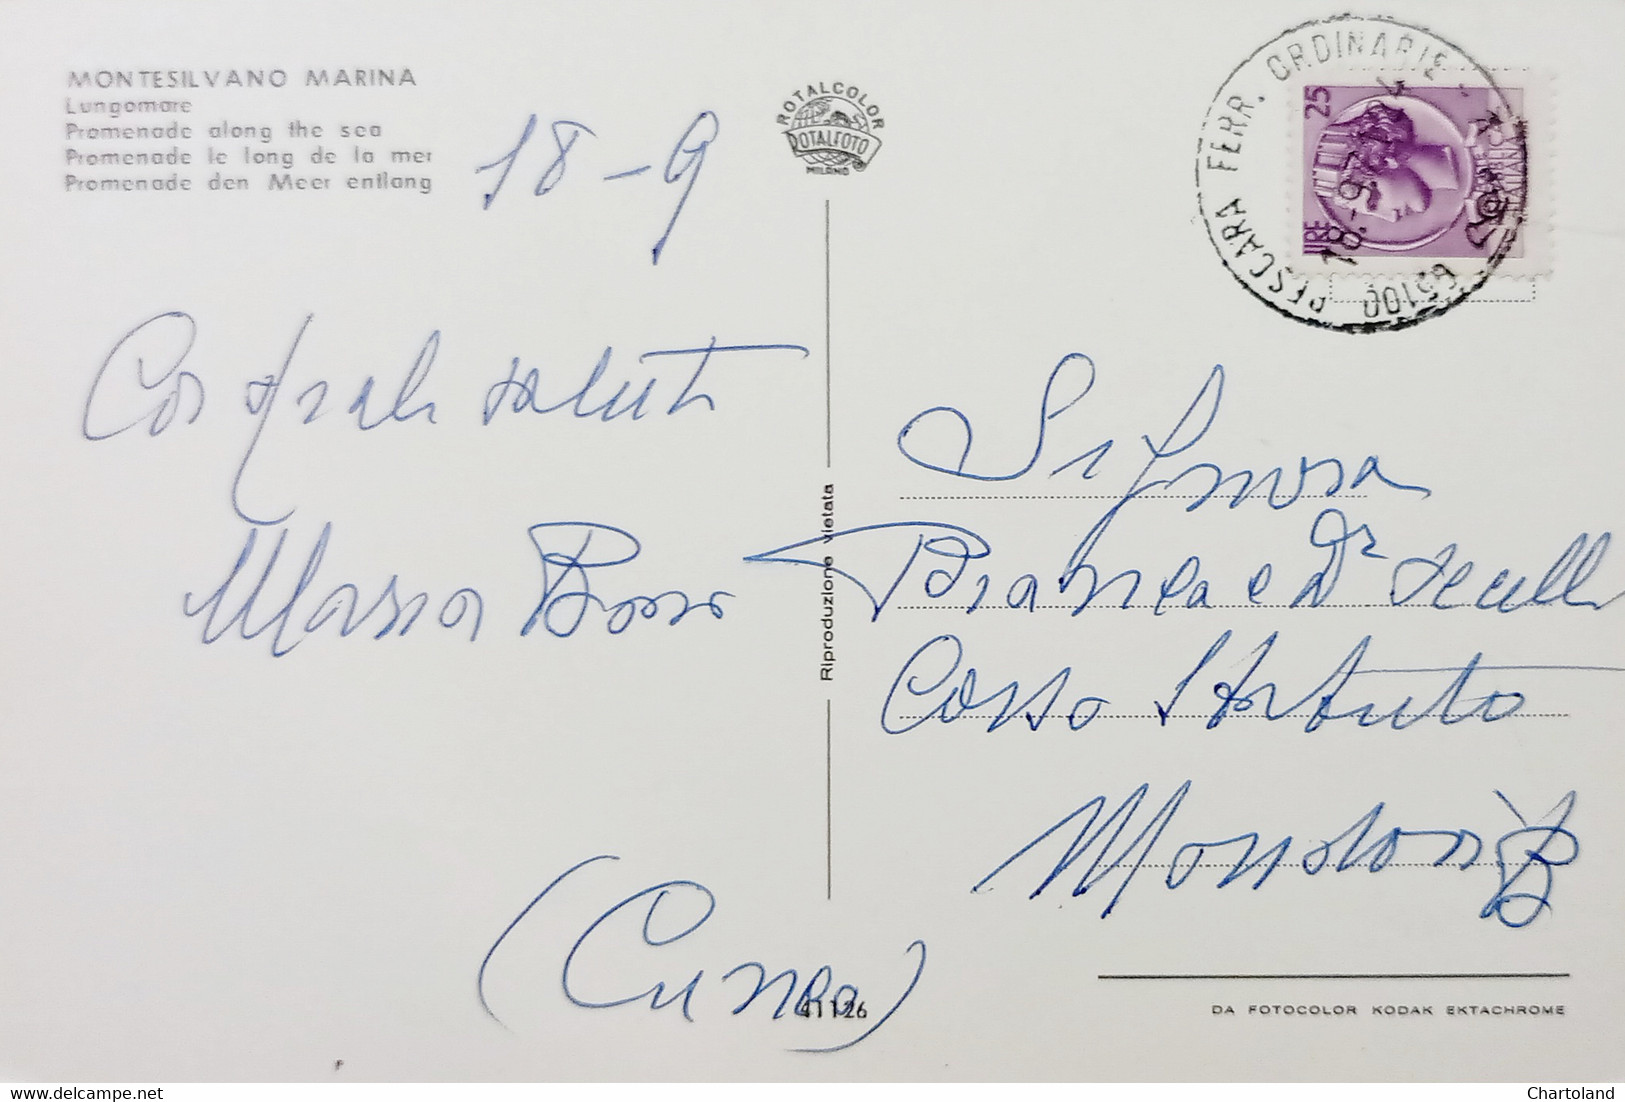 MONTESILVANO MARINA
Lungomare
Promenade along the sea
Promenade le long de la mer
Promenade den Meer entlang
18-9
Cordiali saluti
Maria
ROTALCOLOR
ROTALFOTO
MILANO
Riproduzione vietata
PESCARA FERR. ORDINARIE
18.-9.
65100
LIRE 25
Signora
Bianca e Dr
Corso Statuto
Mondovì
(Cuneo)
41126
DA FOTOCOLOR KODAK EKTACHROME
F
www.delcampe.net
Chartoland